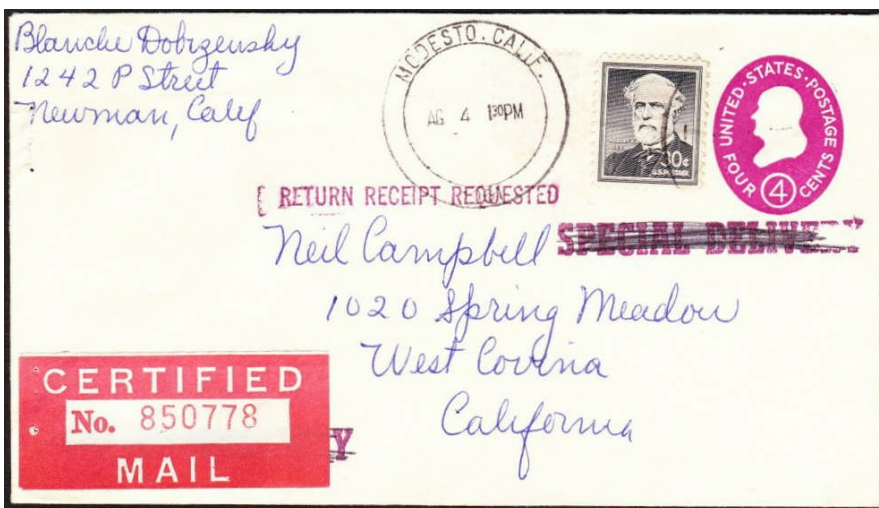 Blanche Dobrzensky
1242 P Street
Newman, Calif
MODESTO. CALIF.
AG 4 130PM
30¢
U.S. POSTAGE
UNITED·STATES·POSTAGE
FOUR 4 CENTS
RETURN RECEIPT REQUESTED
SPECIAL DELIVERY
Neil Campbell
1020 Spring Meadow
West Covina
California
CERTIFIED
No. 850778
MAIL
Y